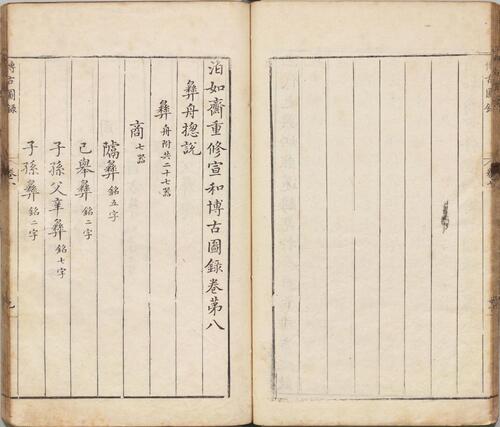 泊如齋重修宣和博古圖錄卷第八
彝舟揔說
彝 舟附共二十七器
商 七器
隲彝 銘五字
己舉彝 銘二字
子孫父辛彝 銘七字
子孫彝 銘二字
博古圖錄
博古圖錄